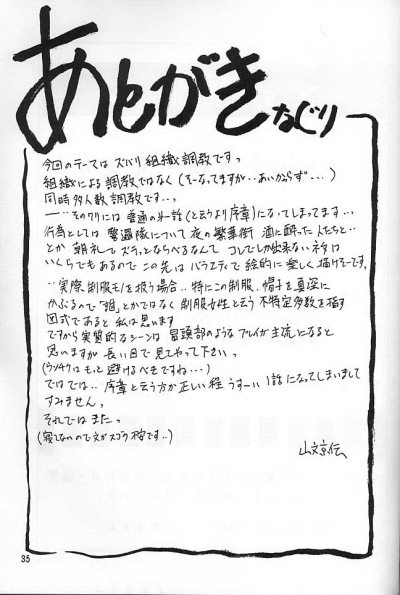 あとがき なぐり
今回のテーマは ズバリ 組織調教ですっ
組織による調教ではなく(そーなってますが‥あいかわらず…)
同時多人数調教です‥っ
そのワリには 普通の 第一話(と云うより序章)になってしまってます…
行為としては 警邏隊について 夜の繁華街 酒に酔った人たちと‥
とか 朝礼で ズラっとならべるなんて コレでしか出来ないネタは
いくらでもあるので この先は バラエティで 絵的に 楽しく 描けそーです。
‥実際 制服モノを扱う場合‥特にこの制服、帽子を真深に
かぶるので「誰」とかではなく 制服女性と云う 不特定多数を指す
図式であると 私は思います
ですから 実質的なシーンは 冒頭部のような プレイが主流になると
思いますが 長い目で 見てやって下さいっ
(ウンチクはもっと避けるべきですね…)
ではでは‥ 序章と云う方が正しい程 うすーい1話になってしまいまして
すみません。
それでは またっ
(寝てないので 文がスゴク 不安です‥)
山文京伝
35